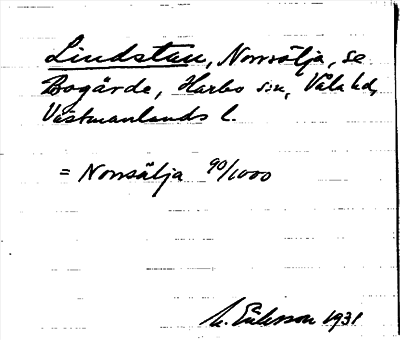 Lindstan, Norrsälja, se
Bogärde, Harbo sn, Våla hd,
Västmanlands l.
= Norrsälja 90/1000
M. Eriksson 1931